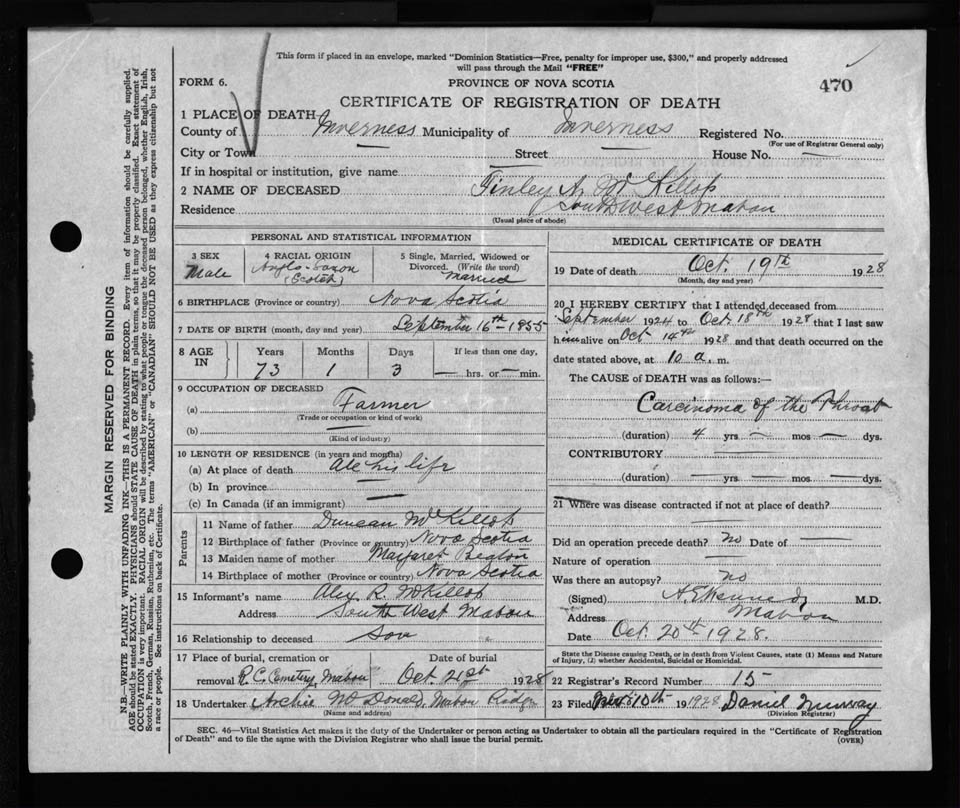 This form if placed in an envelope, marked "Dominion Statistics—Free, penalty for improper use, $300," and properly addressed
will pass through the Mail "FREE"
FORM 6.
PROVINCE OF NOVA SCOTIA
470
CERTIFICATE OF REGISTRATION OF DEATH
1 PLACE OF DEATH
County of Inverness Municipality of Inverness Registered No.
(For use of Registrar General only)
City or Town — Street — House No. —
If in hospital or institution, give name —
2 NAME OF DECEASED Finley A. McKillop
Residence South West Mabou
(Usual place of abode)
PERSONAL AND STATISTICAL INFORMATION
3 SEX
Male
4 RACIAL ORIGIN
Anglo-Saxon
(Scotch)
5 Single, Married, Widowed or
Divorced. (Write the word)
Married
6 BIRTHPLACE (Province or country) Nova Scotia
7 DATE OF BIRTH (month, day and year) September 16th 1855
8 AGE IN
Years Months Days If less than one day,
73 1 3 — hrs. or — min.
9 OCCUPATION OF DECEASED
(a) Farmer
(Trade or occupation or kind of work)
(b) —
(Kind of industry)
10 LENGTH OF RESIDENCE (in years and months)
(a) At place of death All his life
(b) In province —
(c) In Canada (if an immigrant) —
Parents
11 Name of father Duncan McKillop
12 Birthplace of father (Province or country) Nova Scotia
13 Maiden name of mother Margaret Beaton
14 Birthplace of mother (Province or country) Nova Scotia
15 Informant's name Alex R. McKillop
Address South West Mabou
16 Relationship to deceased Son
17 Place of burial, cremation or
removal R.C. Cemetery, Mabou
Date of burial
Oct 21st 1928
18 Undertaker Archie McDonald, Mabou Ridge
(Name and address)
MEDICAL CERTIFICATE OF DEATH
19 Date of death Oct. 19th 1928
(Month, day and year)
20 I HEREBY CERTIFY that I attended deceased from
September 1924 to Oct. 18th 1928 that I last saw
him alive on Oct 14th 1928 and that death occurred on the
date stated above, at 10 a. m.
The CAUSE of DEATH was as follows:—
Carcinoma of the Throat
(duration) 4 yrs — mos — dys.
CONTRIBUTORY —
(duration) — yrs — mos — dys.
21 Where was disease contracted if not at place of death?
—
Did an operation precede death? No Date of —
Nature of operation —
Was there an autopsy? no
(Signed) A E Kennedy M.D.
Address Mabou
Date Oct. 20th 1928.
State the Disease causing Death, or in death from Violent Causes, state (1) Means and Nature
of Injury, (2) whether Accidental, Suicidal or Homicidal.
22 Registrar's Record Number 15
23 Filed Nov 10th 1928 Daniel Murray
(Division Registrar)
SEC. 46—Vital Statistics Act makes it the duty of the Undertaker or person acting as Undertaker to obtain all the particulars required in the "Certificate of Registration
of Death" and to file the same with the Division Registrar who shall issue the burial permit.
(OVER)
MARGIN RESERVED FOR BINDING
N.B.—WRITE PLAINLY WITH UNFADING INK—THIS IS A PERMANENT RECORD. Every item of information should be carefully supplied.
AGE should be stated EXACTLY. PHYSICIANS should STATE CAUSE OF DEATH in plain terms, so that it may be properly classified. Exact statement of
OCCUPATION is very important. RACIAL ORIGIN will be described by stating to what people or tongue the deceased person belonged, whether English, Irish,
Scotch, French, German, Russian, Ruthenian, etc. The terms "AMERICAN" or "CANADIAN" SHOULD NOT BE USED as they express citizenship but not
a race or people. See instructions on back of Certificate.